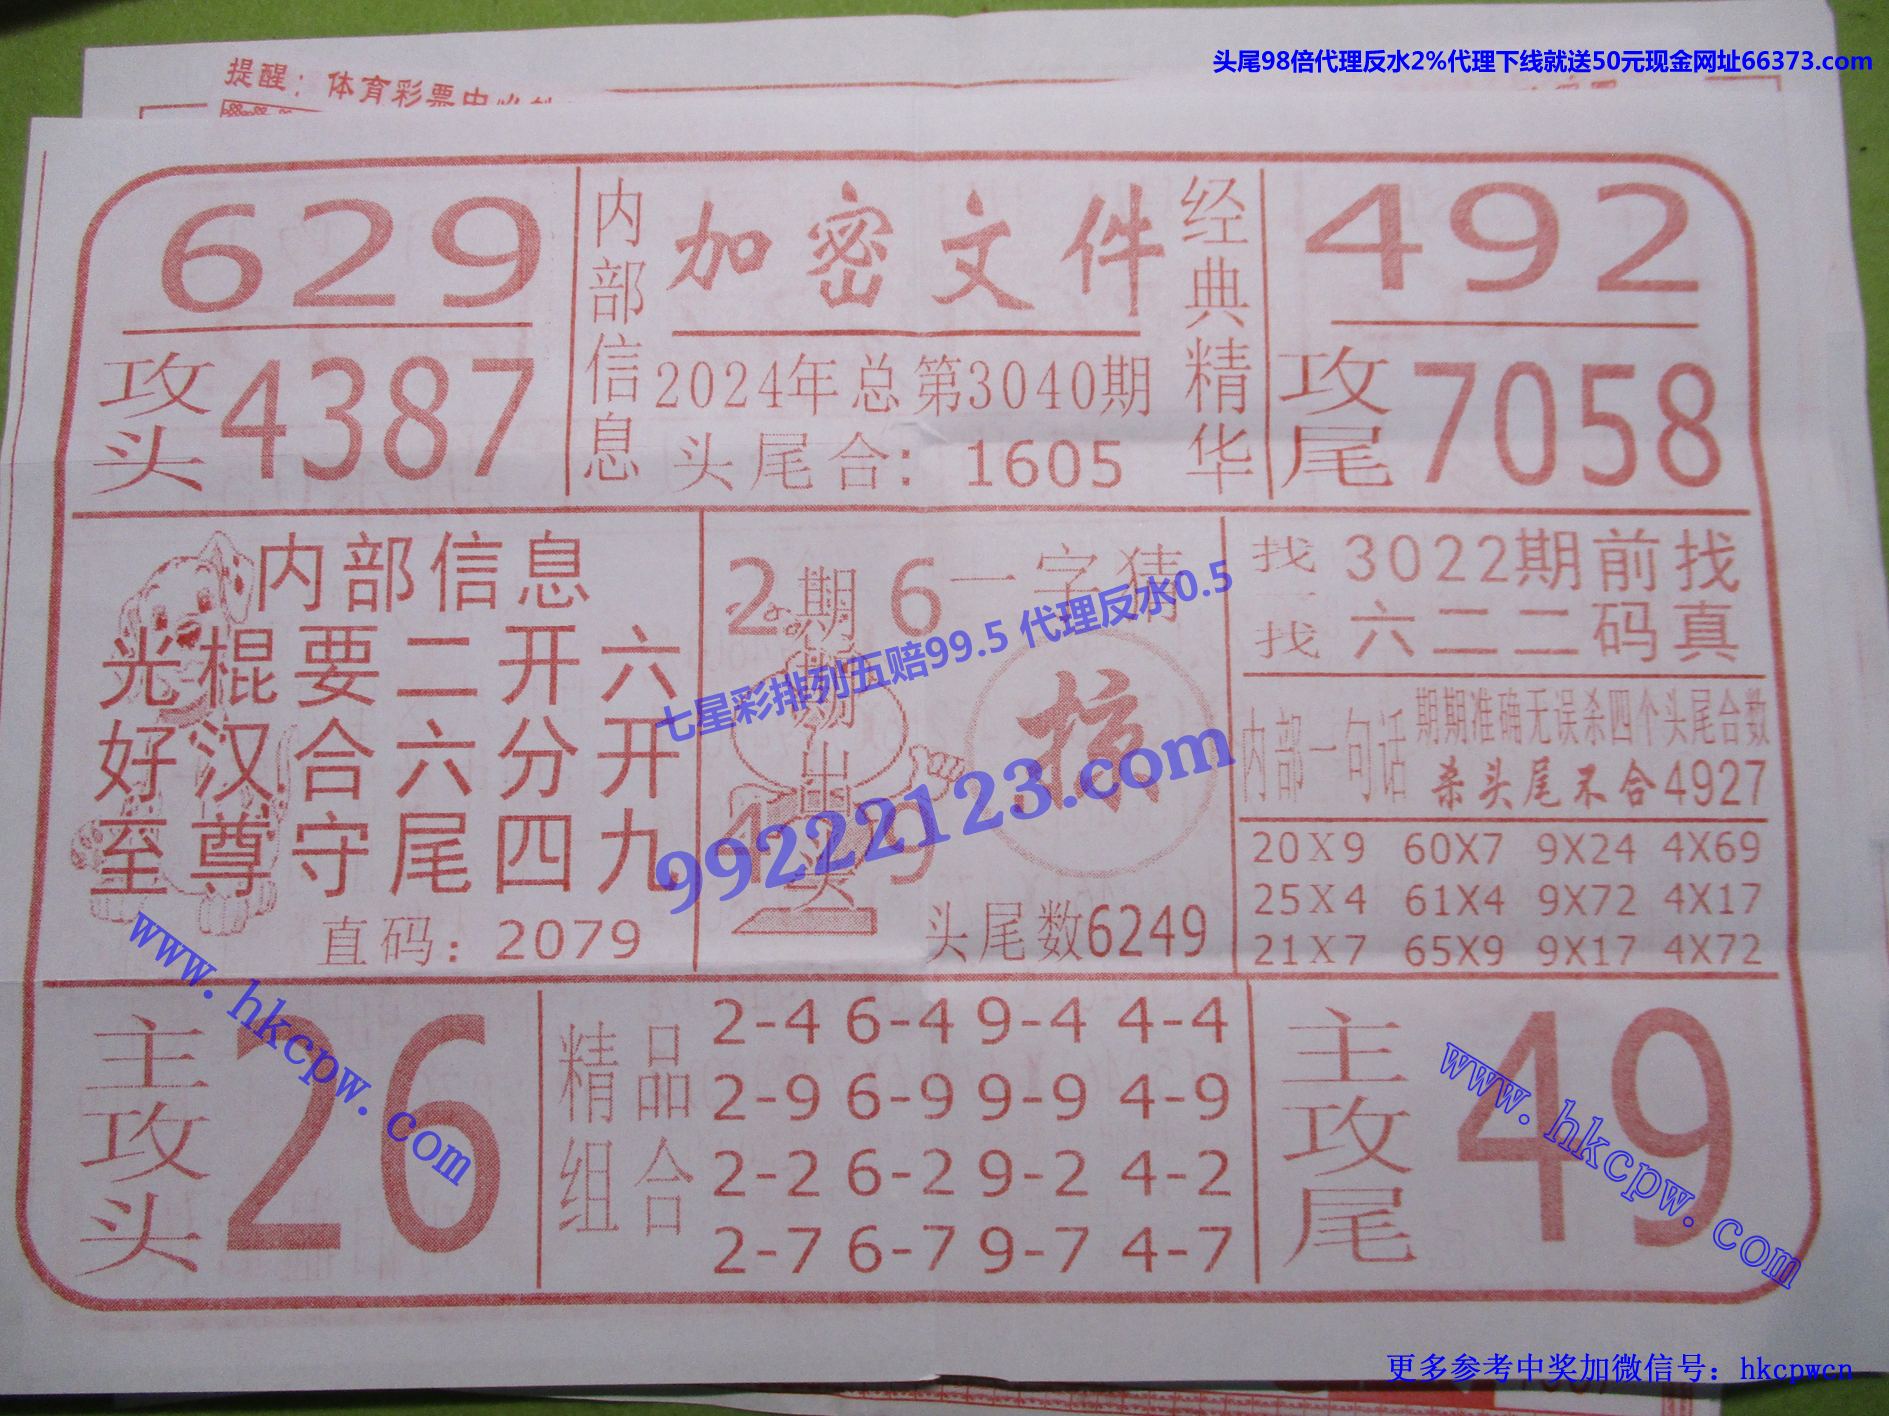 头尾98倍代理反水2%代理下线就送50元现金网址66373.com
提醒：体育彩票中
629
攻头
4387
内部信息
加密文件
2024年总第3040期
头尾合：1605
经典精华
492
攻尾
7058
内部信息
光棍要二开六
好汉合六分开
至尊守尾四九
直码：2079
2期6
期期出头
一字猜
掠
头尾数6249
找一找
3022期前找
六二二码真
内部一句话
期期准确无误杀四个头尾合数
杀头尾不合4927
20X9 60X7 9X24 4X69
25X4 61X4 9X72 4X17
21X7 65X9 9X17 4X72
七星彩排列五赔99.5 代理反水0.5
99222123.com
主攻头
26
精品组合
2-4 6-4 9-4 4-4
2-9 6-9 9-9 4-9
2-2 6-2 9-2 4-2
2-7 6-7 9-7 4-7
主攻尾
49
www.hkcpw.com
www.hkcpw.com
更多参考中奖加微信号：hkcpwcn